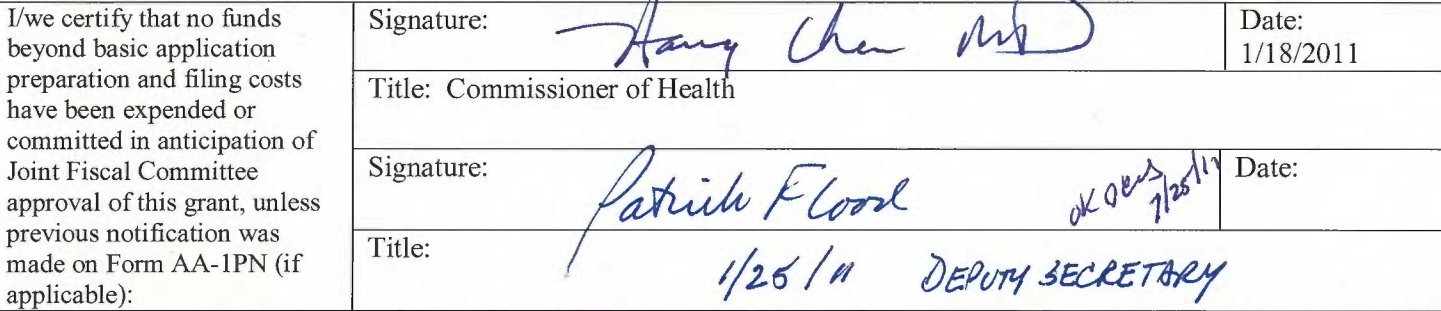 I/we certify that no funds
beyond basic application
preparation and filing costs
have been expended or
committed in anticipation of
Joint Fiscal Committee
approval of this grant, unless
previous notification was
made on Form AA-1PN (if
applicable):
Signature: Harry Chen MD
Date:
1/18/2011
Title: Commissioner of Health
Signature: Patrick Flood
OK
Date:
Title:
DEPUTY SECRETARY